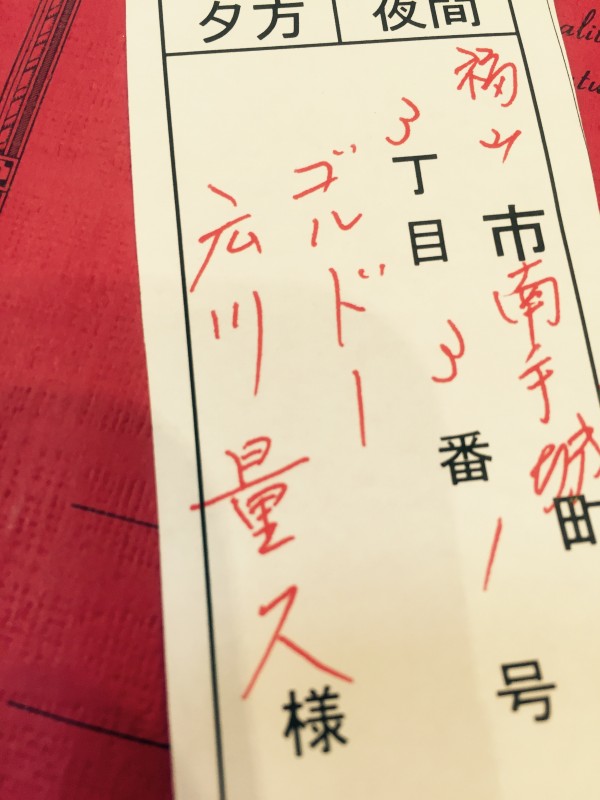 夕方 夜間
福山市南手城町
3丁目3番1号
ゴルドー
広川量久様